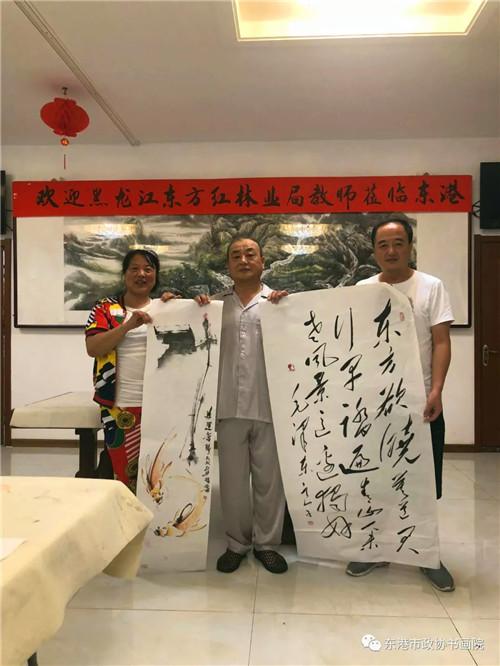 欢迎黑龙江东方红林业局教师莅临东港
东方欲晓莫道君
行早踏遍青山人未
老风景这边独好
毛泽东
东港市政协书画院